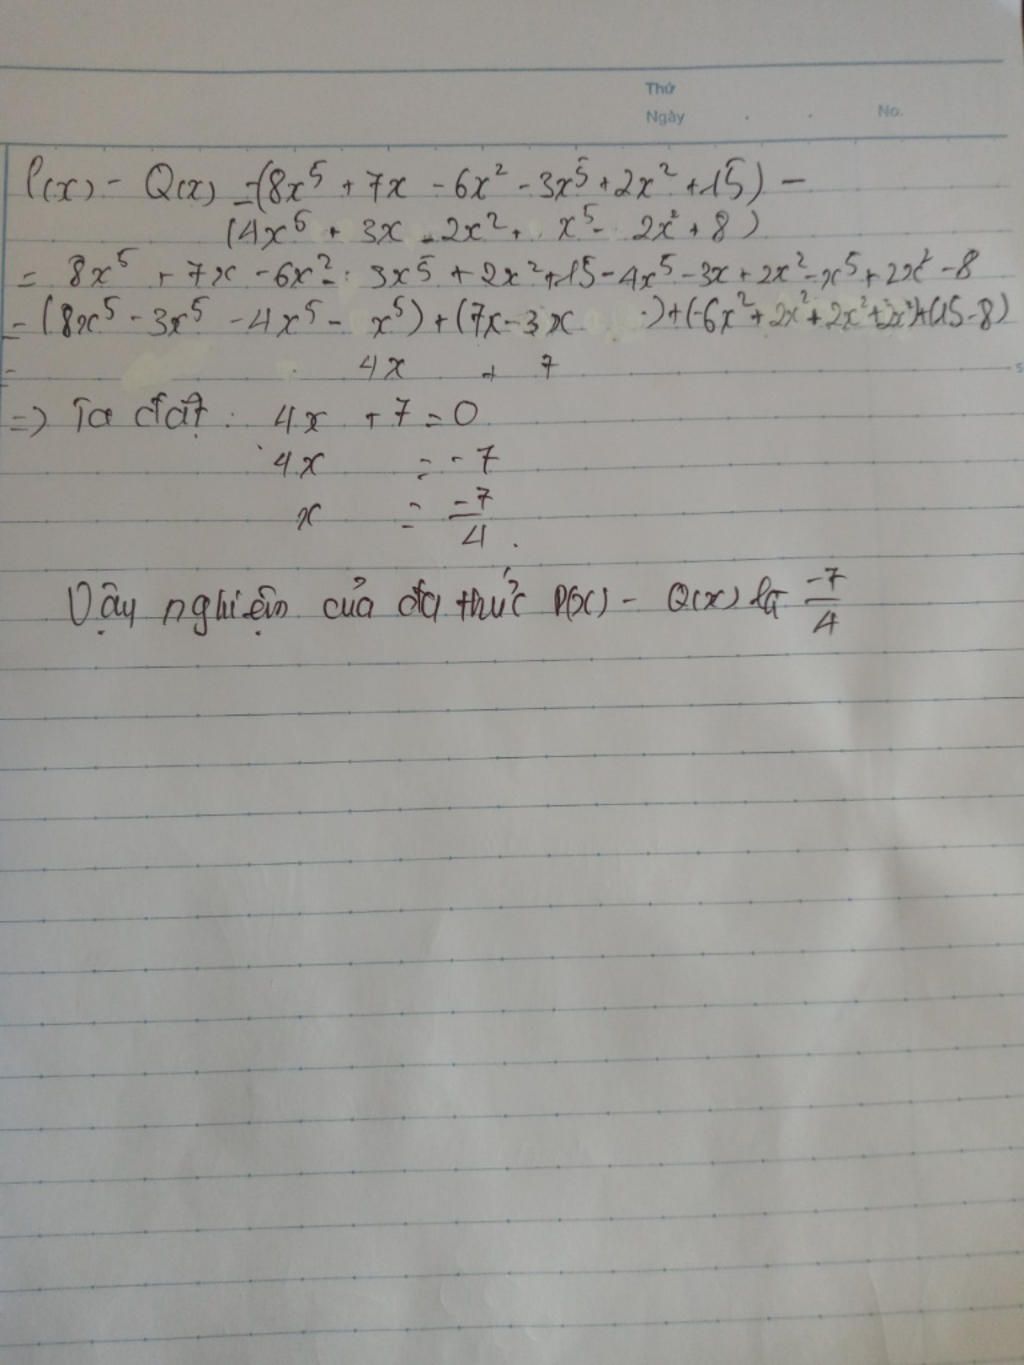 Thứ
Ngày . . No.
P(x) - Q(x) = (8x⁵ + 7x - 6x² - 3x⁵ + 2x² + 15) -
(4x⁵ + 3x - 2x² + x⁵ - 2x² + 8)
= 8x⁵ + 7x - 6x² - 3x⁵ + 2x² + 15 - 4x⁵ - 3x + 2x² - x⁵ + 2x² - 8
= (8x⁵ - 3x⁵ - 4x⁵ - x⁵) + (7x - 3x) + (-6x² + 2x² + 2x² + 2x²) + (15 - 8)
= 4x + 7
=> Ta đặt: 4x + 7 = 0
4x = -7
x = -7/4.
Vậy nghiệm của đa thức P(x) - Q(x) là -7/4